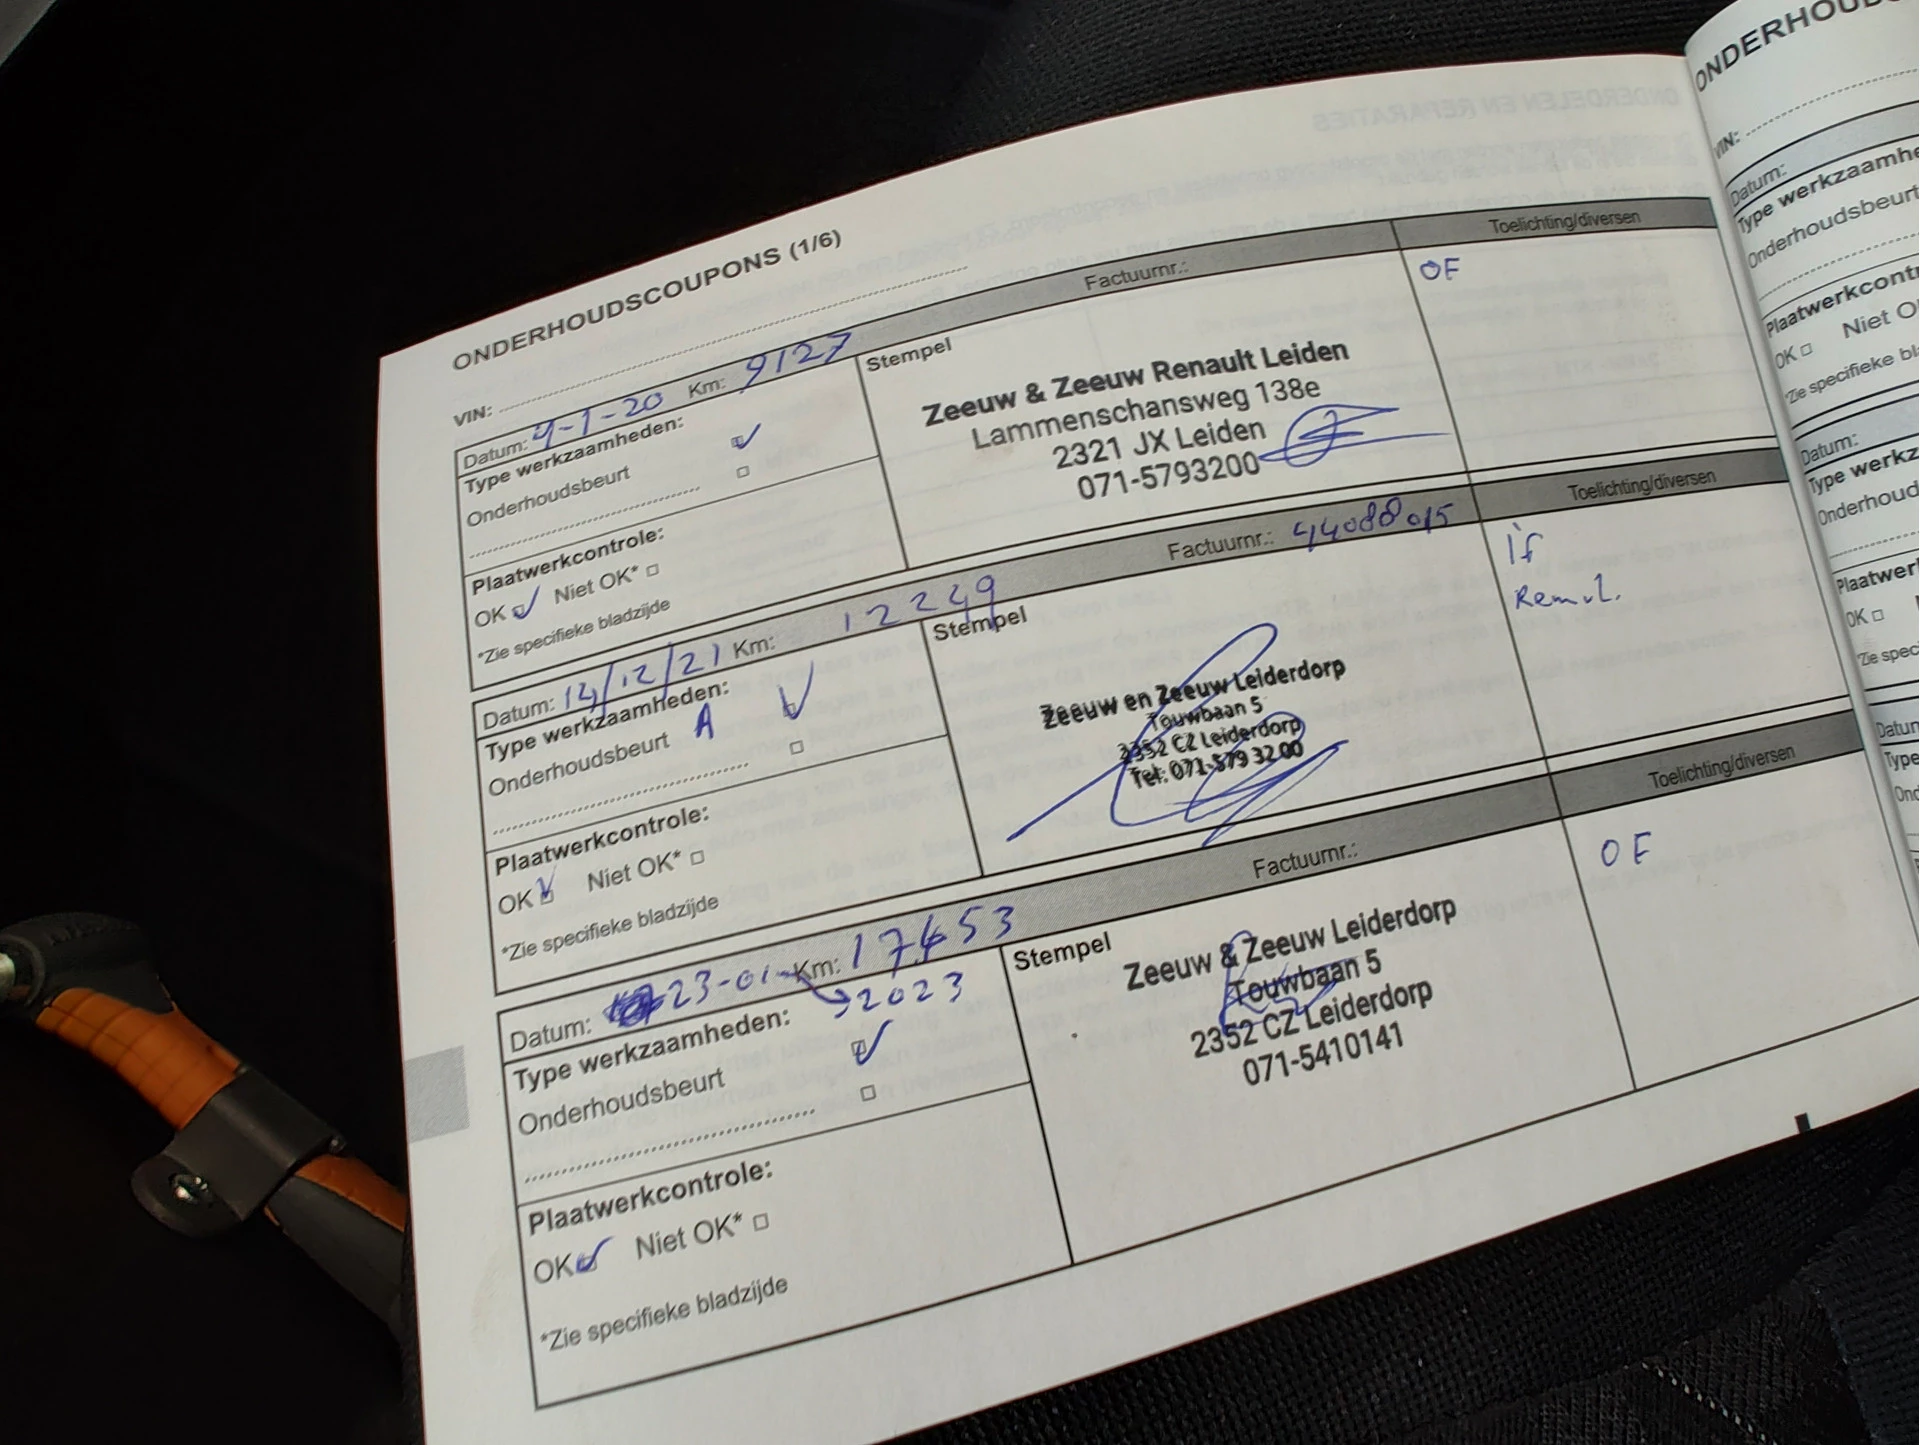 ONDERHOUDSCOUPONS (1/6)
VIN:
Datum: 9-1-20 Km: 9127 Factuurnr.: Toelichting/diversen
Type werkzaamheden:
Onderhoudsbeurt
Plaatwerkcontrole:
OK Niet OK*
*Zie specifieke bladzijde
Stempel
Zeeuw & Zeeuw Renault Leiden
Lammenschansweg 138e
2321 JX Leiden
071-5793200
OF
Datum: 14/12/21 Km: 12249 Factuurnr.: 44088015 Toelichting/diversen
Type werkzaamheden:
Onderhoudsbeurt A
Plaatwerkcontrole:
OK Niet OK*
*Zie specifieke bladzijde
Stempel
Zeeuw en Zeeuw Leiderdorp
Touwbaan 5
2352 CZ Leiderdorp
Tel: 071-579 32 00
if
Datum: 23-01- Km: 17453 Factuurnr.: Toelichting/diversen
2023
Type werkzaamheden:
Onderhoudsbeurt
Plaatwerkcontrole:
OK Niet OK*
*Zie specifieke bladzijde
Stempel
Zeeuw & Zeeuw Leiderdorp
Touwbaan 5
2352 CZ Leiderdorp
071-5410141
OF
VIN:
Datum:
Type
Onderhoudsbeurt
OK Niet
Datum:
Type
OK